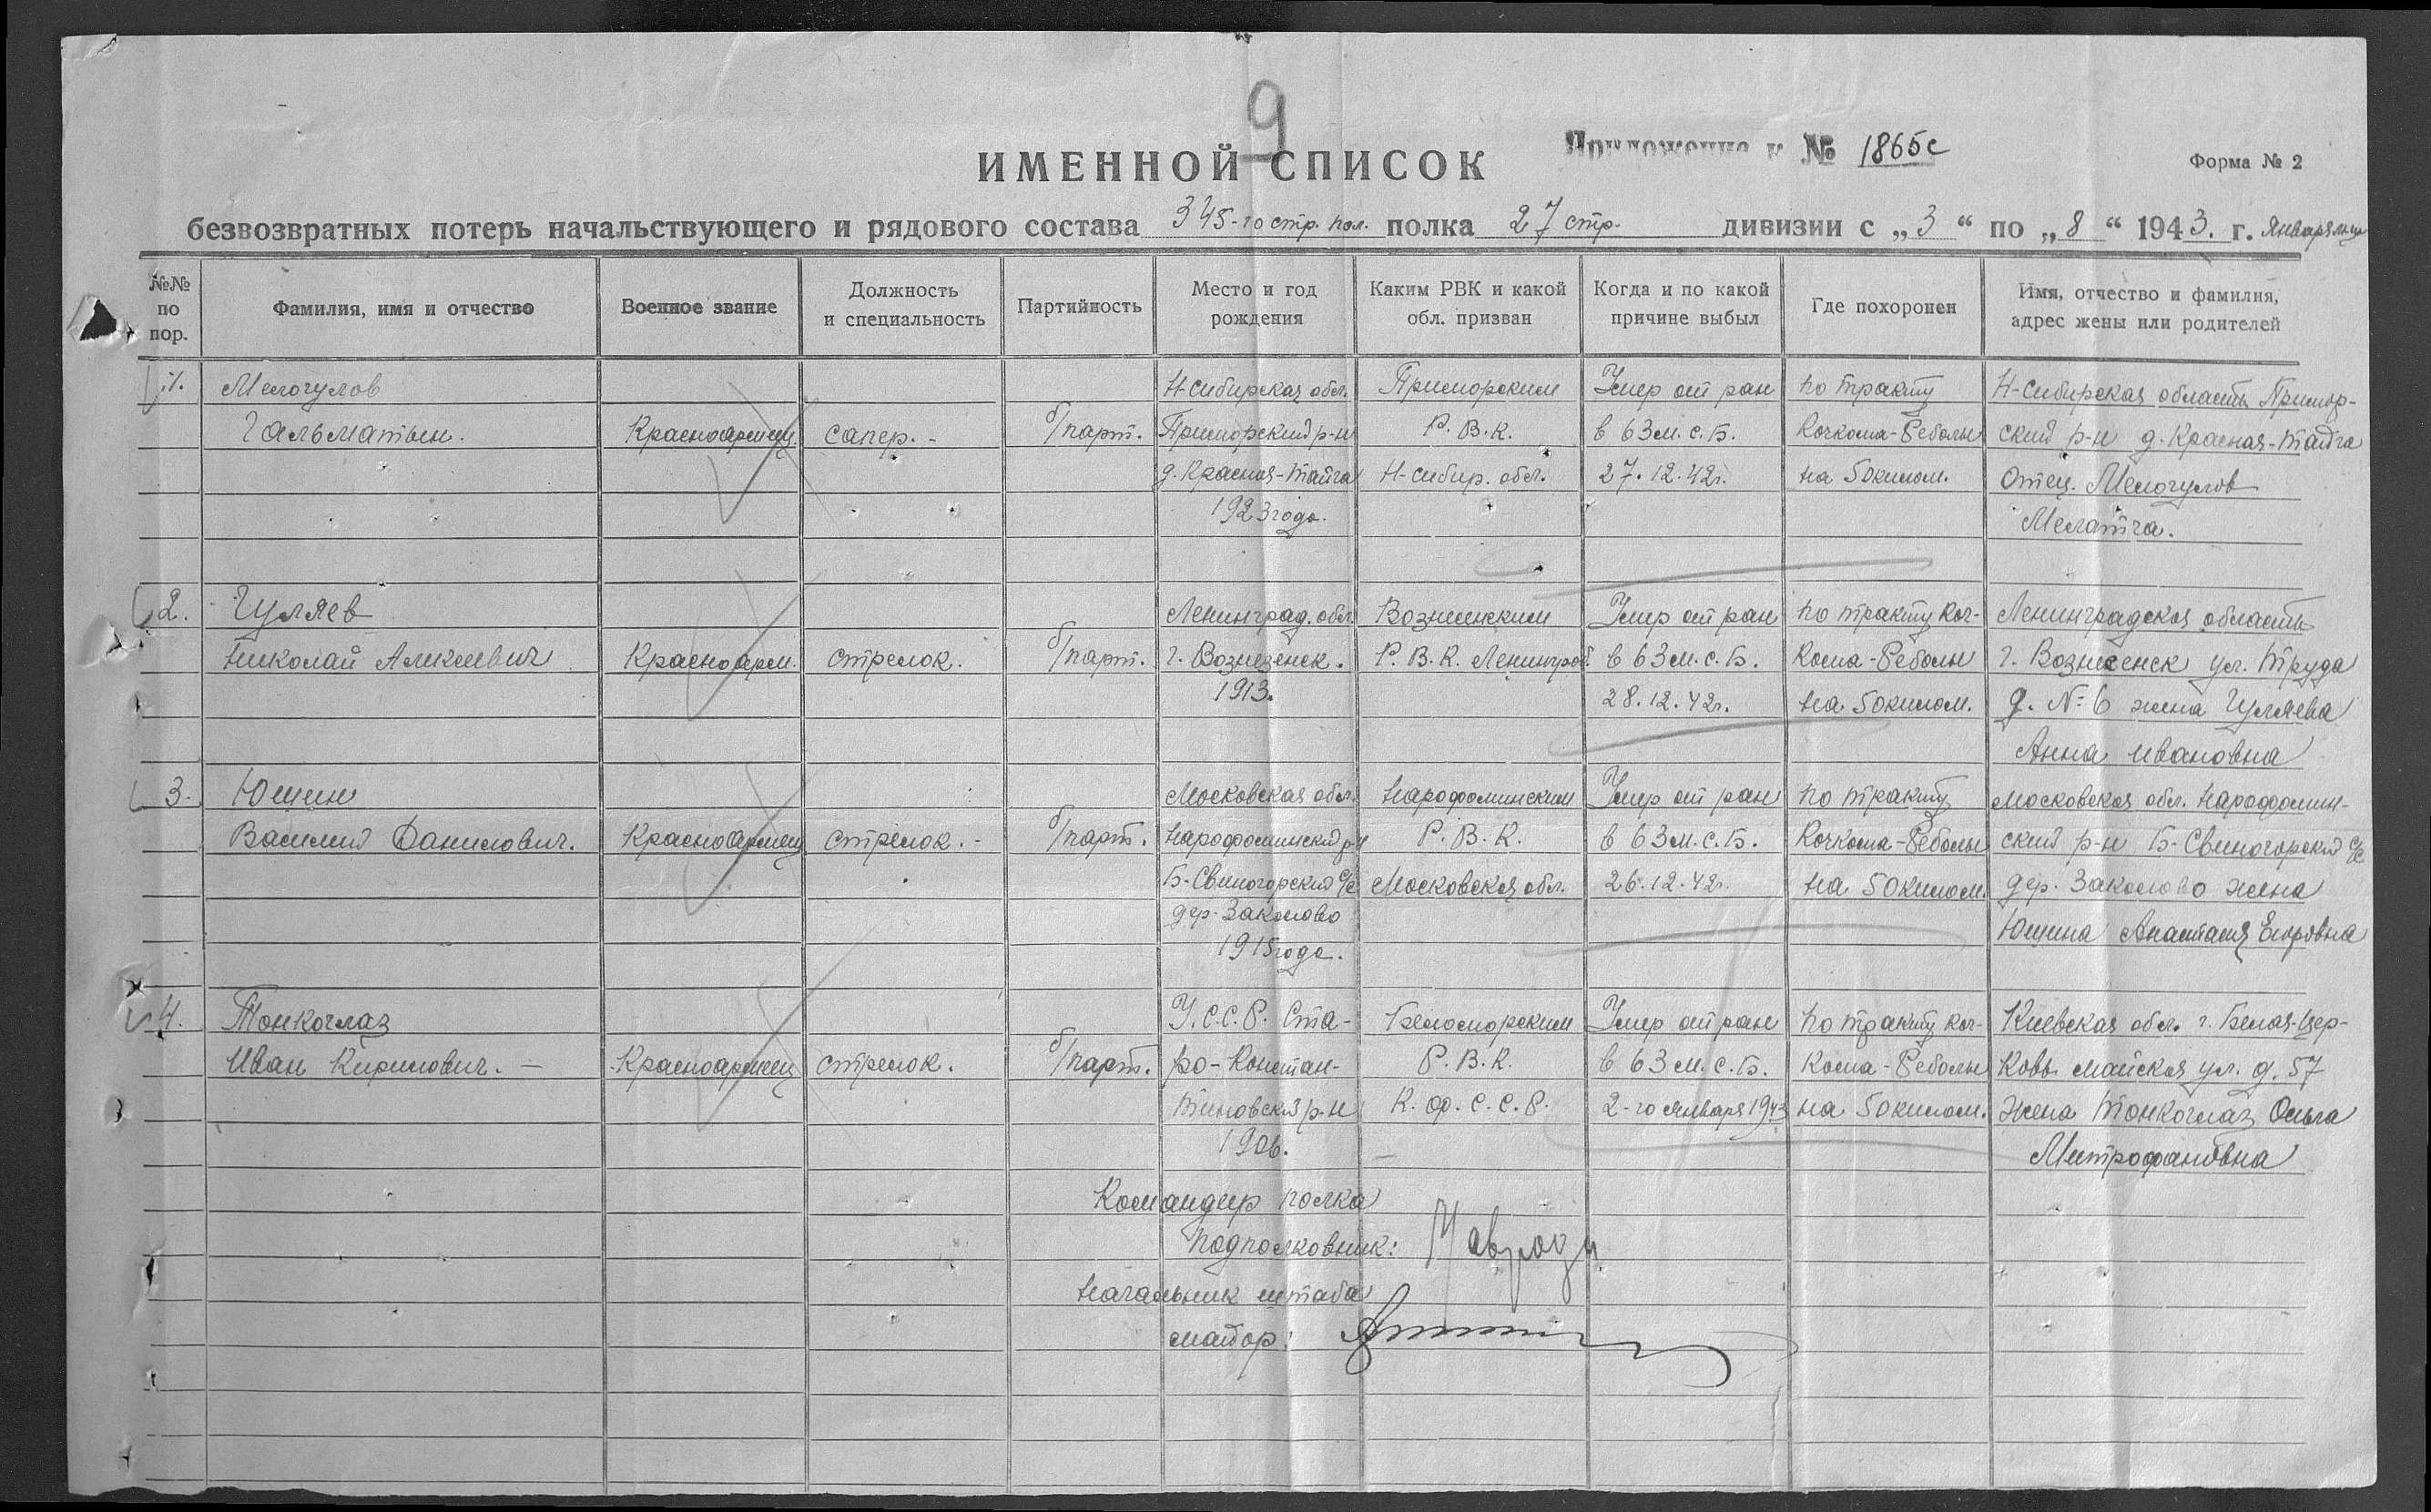 9
ИМЕННОЙ СПИСОК
Приложение к № 1865с
Форма № 2
безвозвратных потерь начальствующего и рядового состава 345-го стр. пол. полка 27 стр. дивизии с „3“ по „8“ 1943. г. Января м-ца
№№ по пор.
Фамилия, имя и отчество
Военное звание
Должность и специальность
Партийность
Место и год рождения
Каким РВК и какой обл. призван
Когда и по какой причине выбыл
Где похоронен
Имя, отчество и фамилия, адрес жены или родителей
1. Мелогулов Н-Сибирская обл. Приморским Умер от ран по тракту Н-Сибирская область Примор-
Гальматын. Красноармеец. сапер. - б/парт. Приморский р-н Р.В.К. в 63 м.с.б. Кочкома-Реболы ский р-н д. Красная-Тайга
д. Красная-Тайга Н-Сибир. обл. 27.12.42г. на 50 килом. Отец. Мелогулов
1923 года. Мелатга.
2. Гуляев Ленинград. обл. Вознесенским Умер от ран по тракту Коч- Ленинградская область
Николай Алексеевич Красноарм. стрелок. б/парт. г. Вознезенск. Р.В.К. Ленинград. в 63 м.с.б. кома-Реболы г. Вознесенск ул. Труда
1913. 28.12.42г. на 50 килом. д. № 6 жена Гуляева
Анна Ивановна
3. Юшин Московская обл. Нарофоминским Умер от ран по тракту Московская обл. Нарофомин-
Василий Данилович. Красноармеец стрелок. - б/парт. Нарофоминский р-н Р.В.К. в 63 м.с.б. Кочкома-Реболы ский р-н Б-Свиногорский с/с
Б-Свиногорский с/с Московская обл. 26.12.42г. на 50 килом. дер. Заколово жена
дер. Заколово Юшина Анастасия Егоровна
1915 года.
4. Тонкоглаз У.С.С.Р. Ста- Беломорским Умер от ран по тракту Коч- Киевская обл. г. Белая-Цер-
Иван Кирилович. - Красноармеец стрелок. б/парт. ро-Констан- Р.В.К. в 63 м.с.б. кома-Реболы ковь Майская ул. д. 57
тиновский р-н К.ф.С.С.Р. 2-го января 1943 на 50 килом. жена Тонкоглаз Ольга
1906. Митрофановна
Командир полка
подполковник: Мавроди
Начальник штаба
майор: